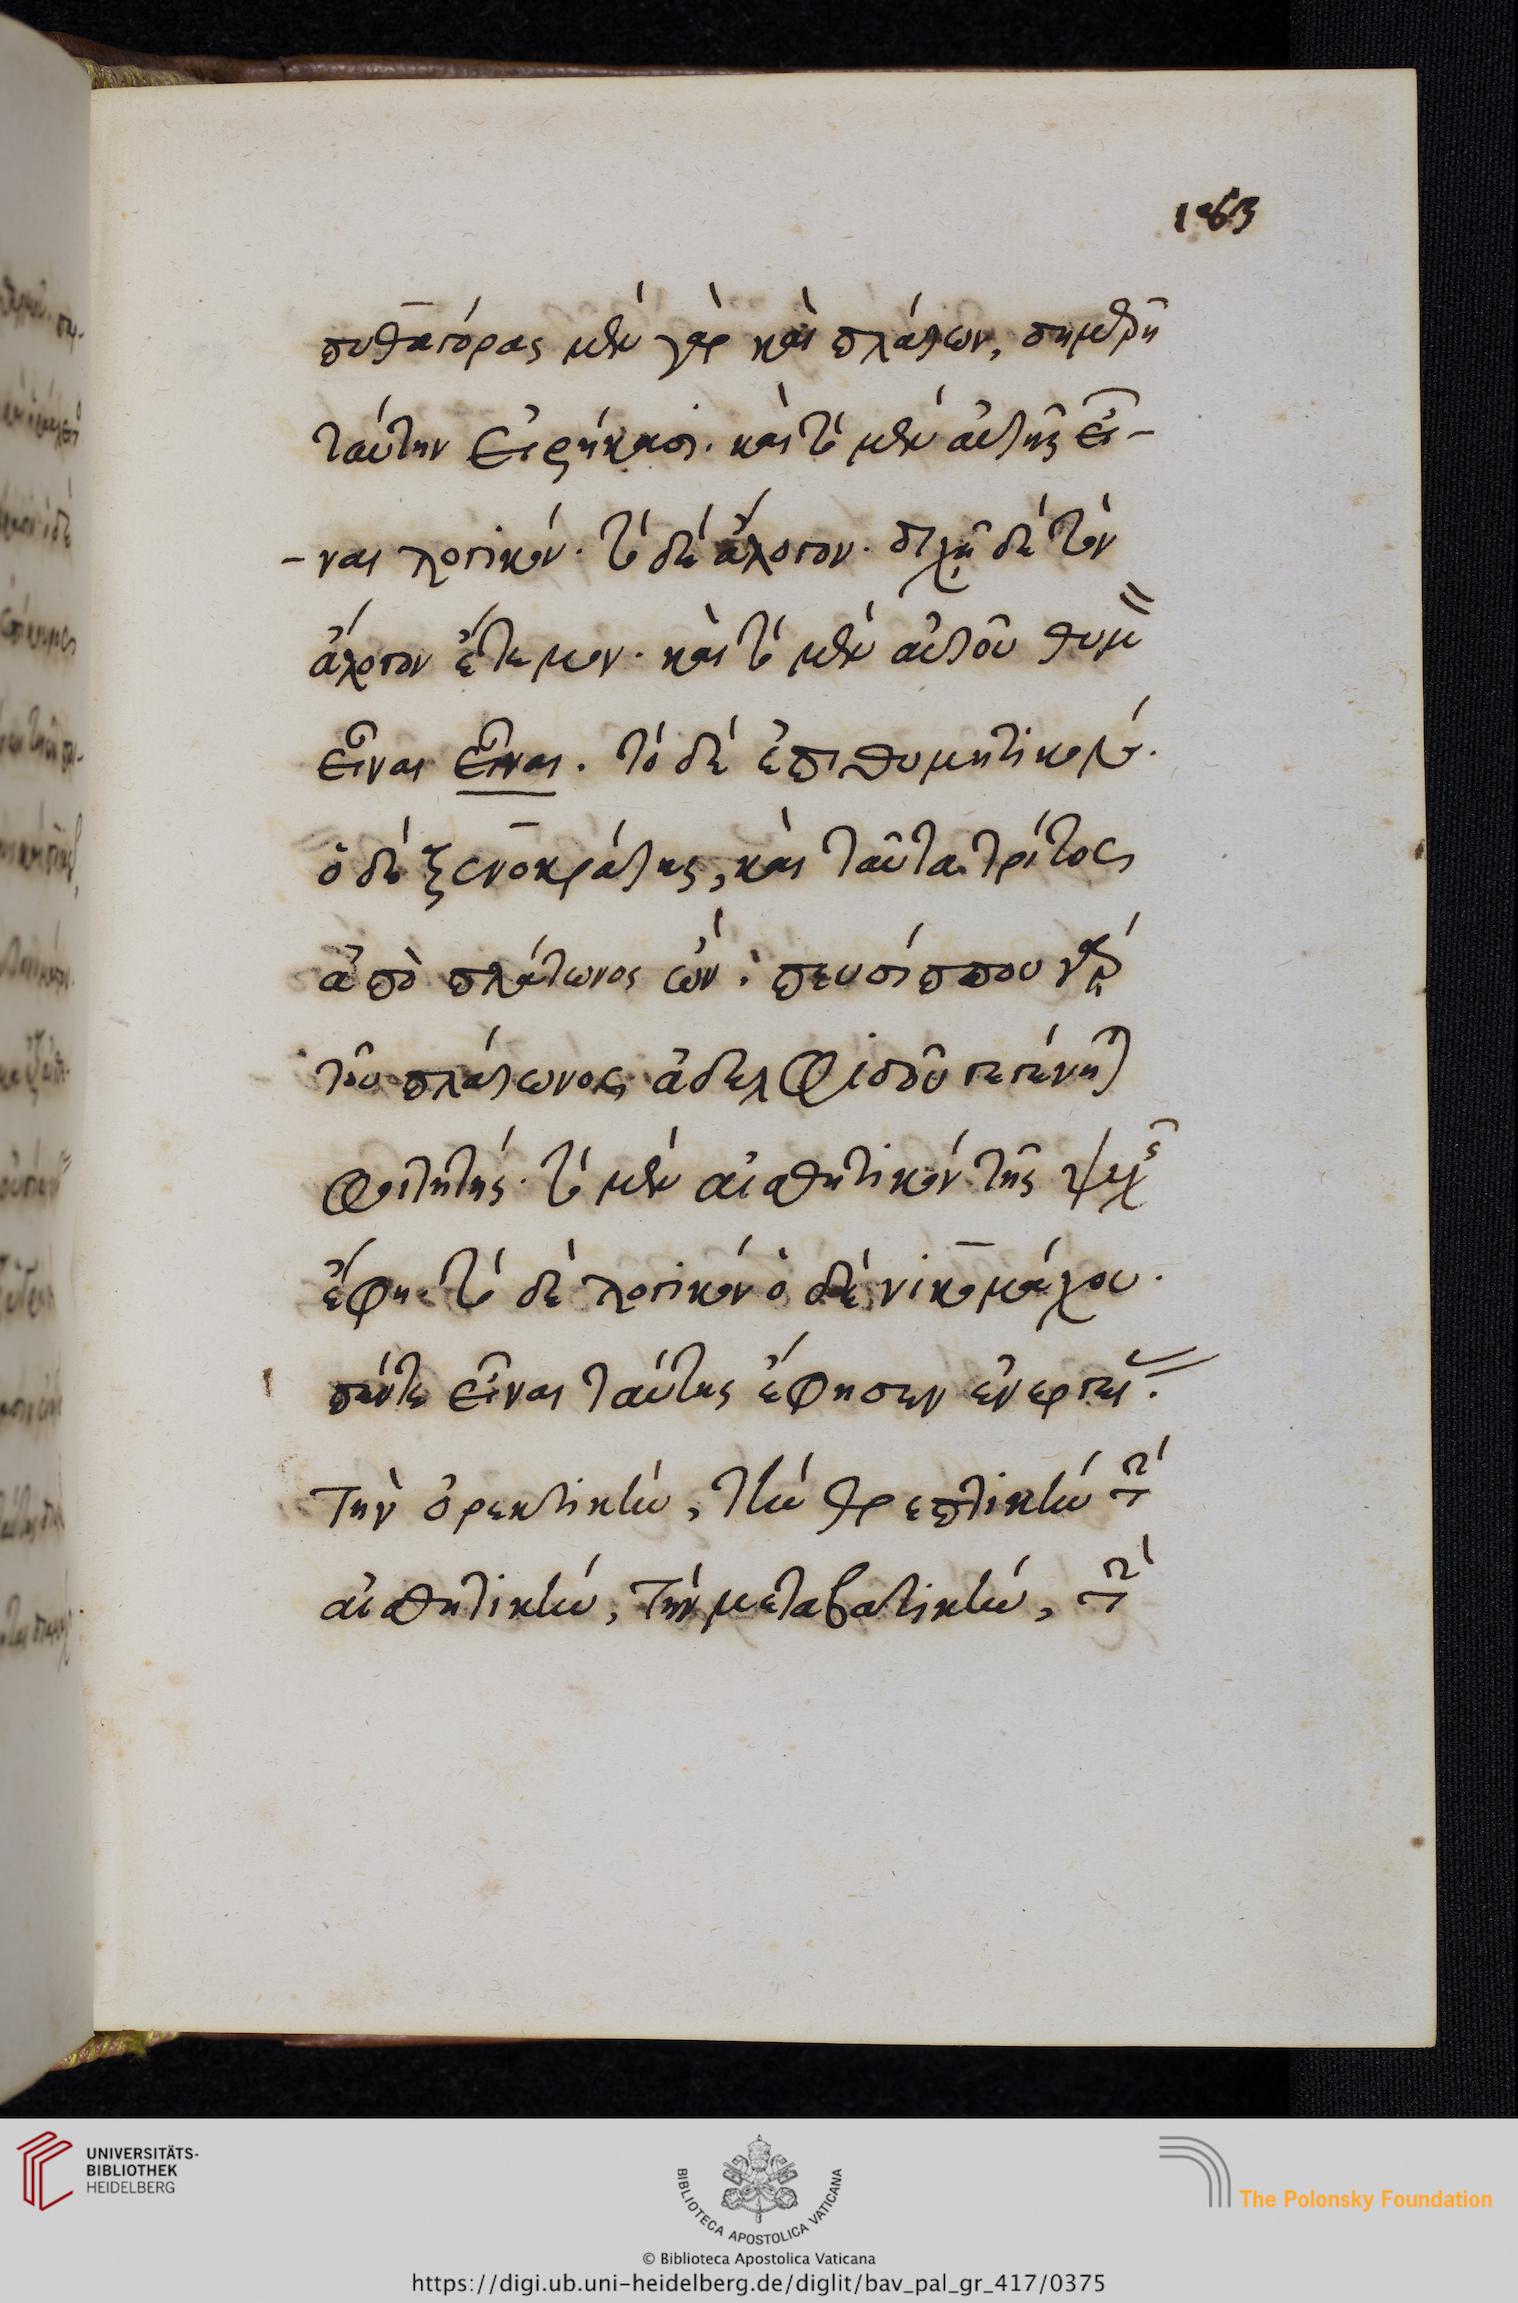 163
πυθαγόρας μὲν γὰρ καὶ πλάτων, τριμερῆ
ταύτην εἰρήκασι. καὶ τὸ μὲν αὐτῆς εἶ-
-ναι λογικόν. τὸ δὲ ἄλογον. διχῆ δὲ τὸν
ἄλογον ἔτεμον. καὶ τὸ μὲν αὐτοῦ θυμ
εἶναι εἶναι. τὸ δὲ ἐπιθυμητικόν.
ὁ δὲ ξενοκράτης, καὶ ταῦτα τρίτος
ἀπὸ πλάτωνος ὢν. πευσίππου γὰρ
τοῦ πλάτωνος ἀδελφιδοῦ γεγένη
φοιτητής. τὸ μὲν αἰσθητικὸν τῆς ψυχῆς
ἔφη. τὸ δὲ λογικόν ὁ δὲ νικομάχου.
πέντε εἶναι ταύτης ἔφησεν ἐνεργεί.
τὴν ὀρεκτικὴν, τὴν θρεπτικὴν τὴν
αἰσθητικὴν, τὴν μεταβατικὴν, τὴν
UNIVERSITÄTS-
BIBLIOTHEK
HEIDELBERG
BIBLIOTECA APOSTOLICA VATICANA
The Polonsky Foundation
© Biblioteca Apostolica Vaticana
https://digi.ub.uni-heidelberg.de/diglit/bav_pal_gr_417/0375